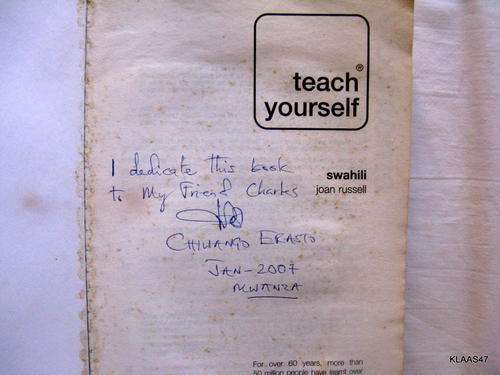 teach®
yourself
swahili
joan russell
I dedicate this book
to My Friend Charles
CHIWANGO ERASTO
JAN-2007
MWANZA
For over 60 years, more than
50 million people have learnt over
KLAAS47